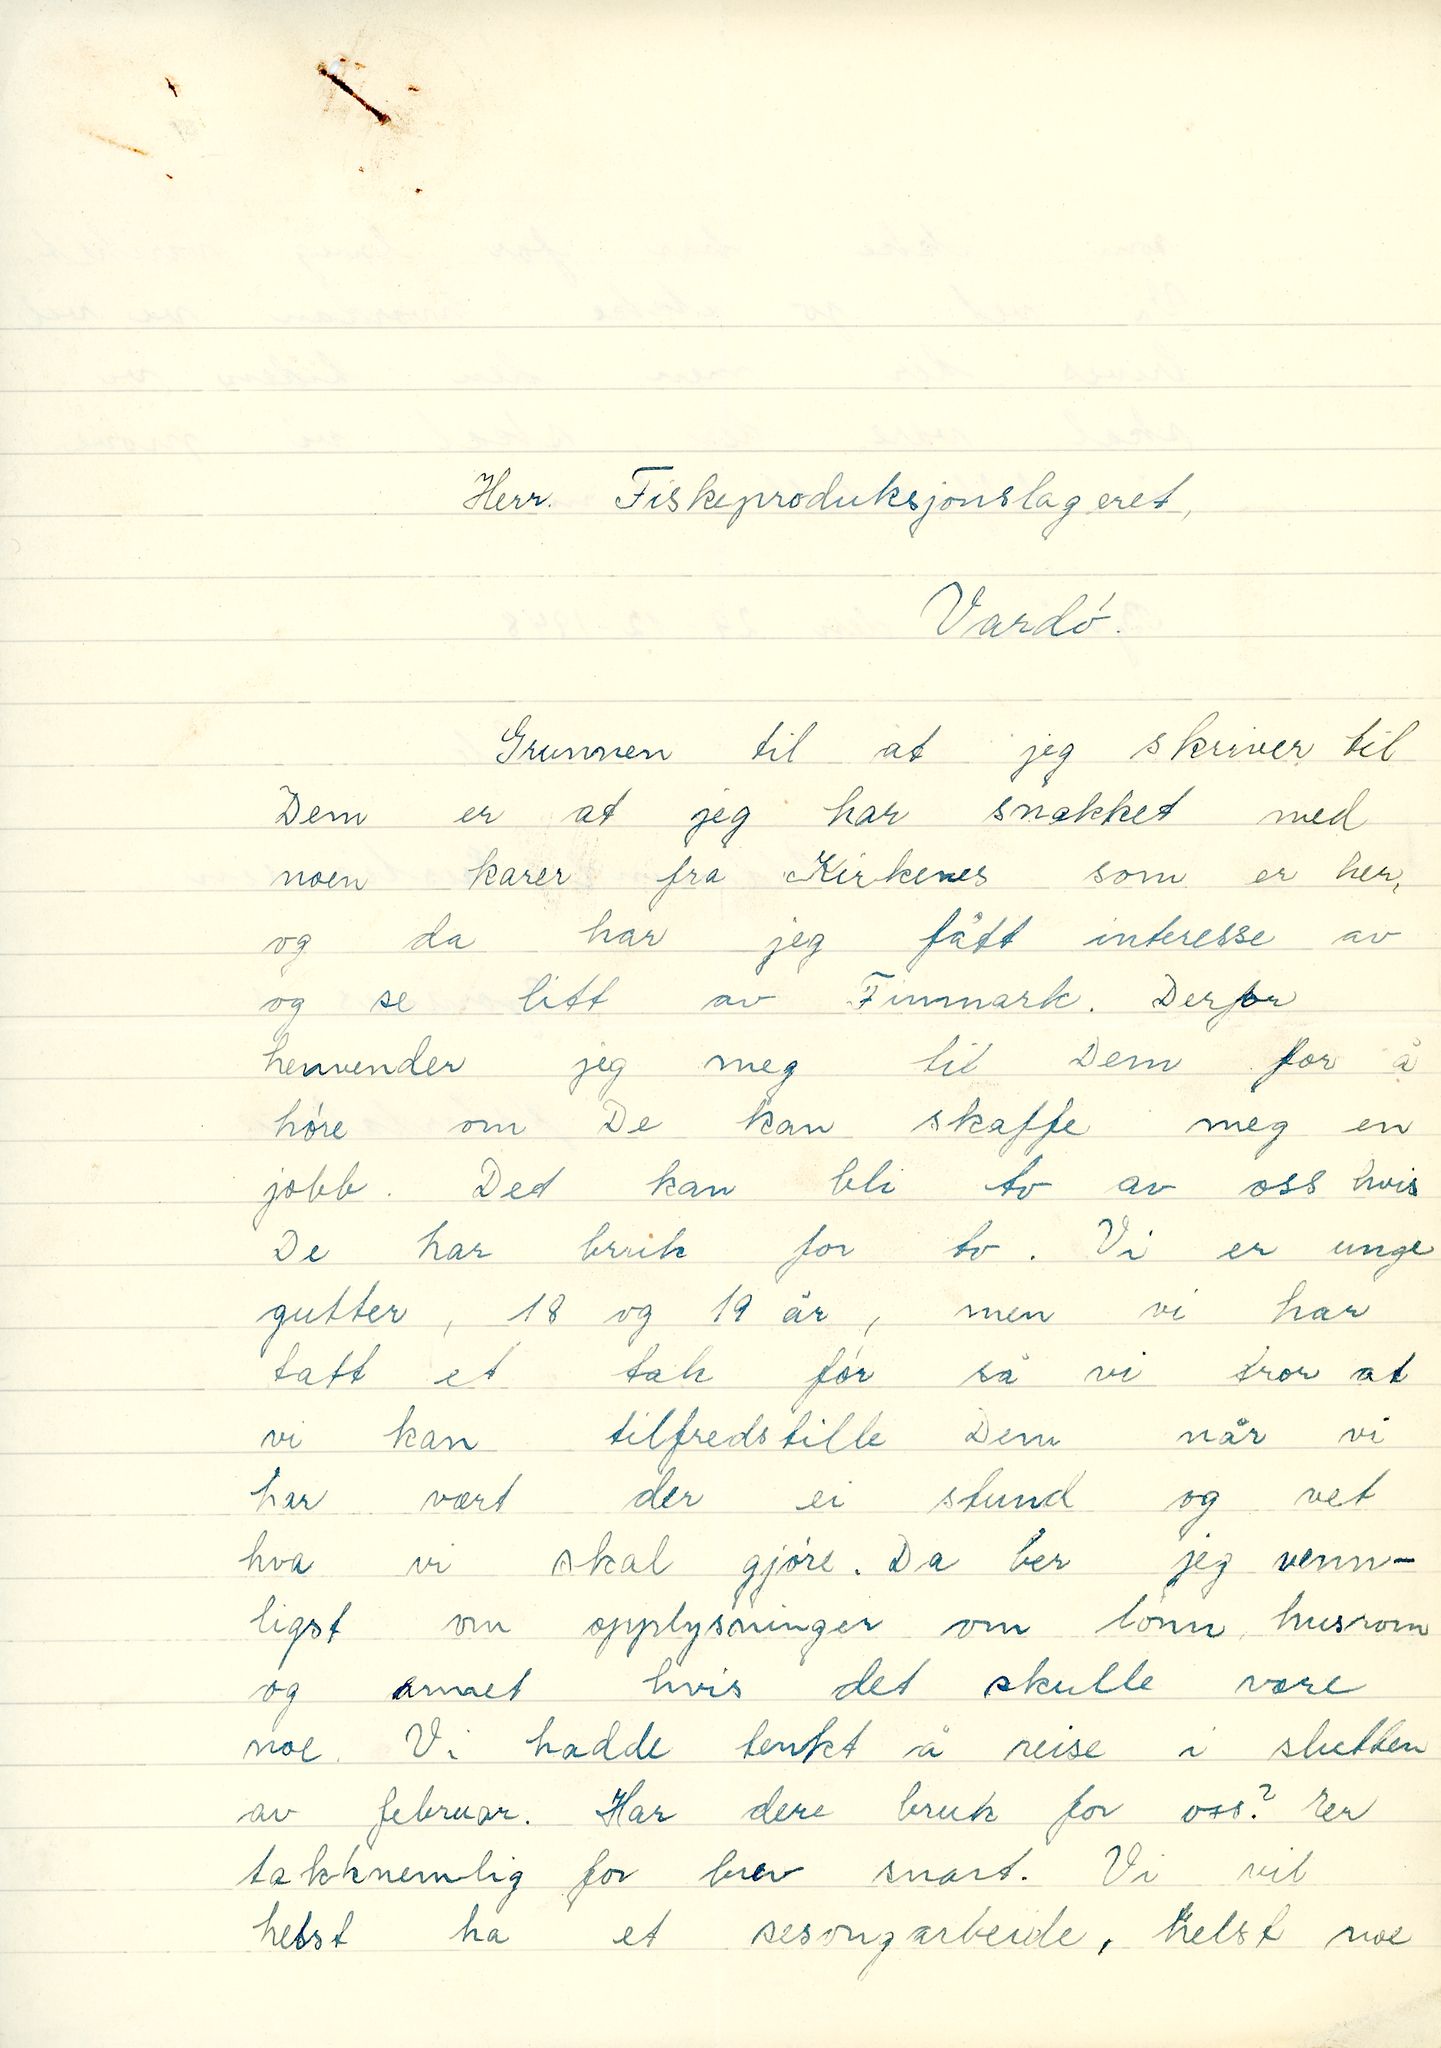 Herr. Fiskeproduksjonslageret,
Vardó.
Grunnen til at jeg skriver til
Dem er at jeg har snakket med
noen karer fra Kirkenes som er her,
og da har jeg fått interesse av
og se litt av Finmark. Derfor
henvender jeg meg til Dem for å
hóre om De kan skaffe meg en
jobb. Det kan bli to av oss hvis
De har bruk for to. Vi er unge
gutter, 18 og 19 år, men vi har
tatt et tak fór så vi tror at
vi kan tilfredstille Dem når vi
har vært der ei stund og vet
hva vi skal gjóre. Da ber jeg venn-
ligst om opplysninger om lónn, husrom
og annet hvis det skulle være
noe. Vi hadde tenkt å reise i slutten
av februar. Har dere bruk for oss? Er
takknemlig for brev snart. Vi vil
helst ha et sesongarbeide, helst noe